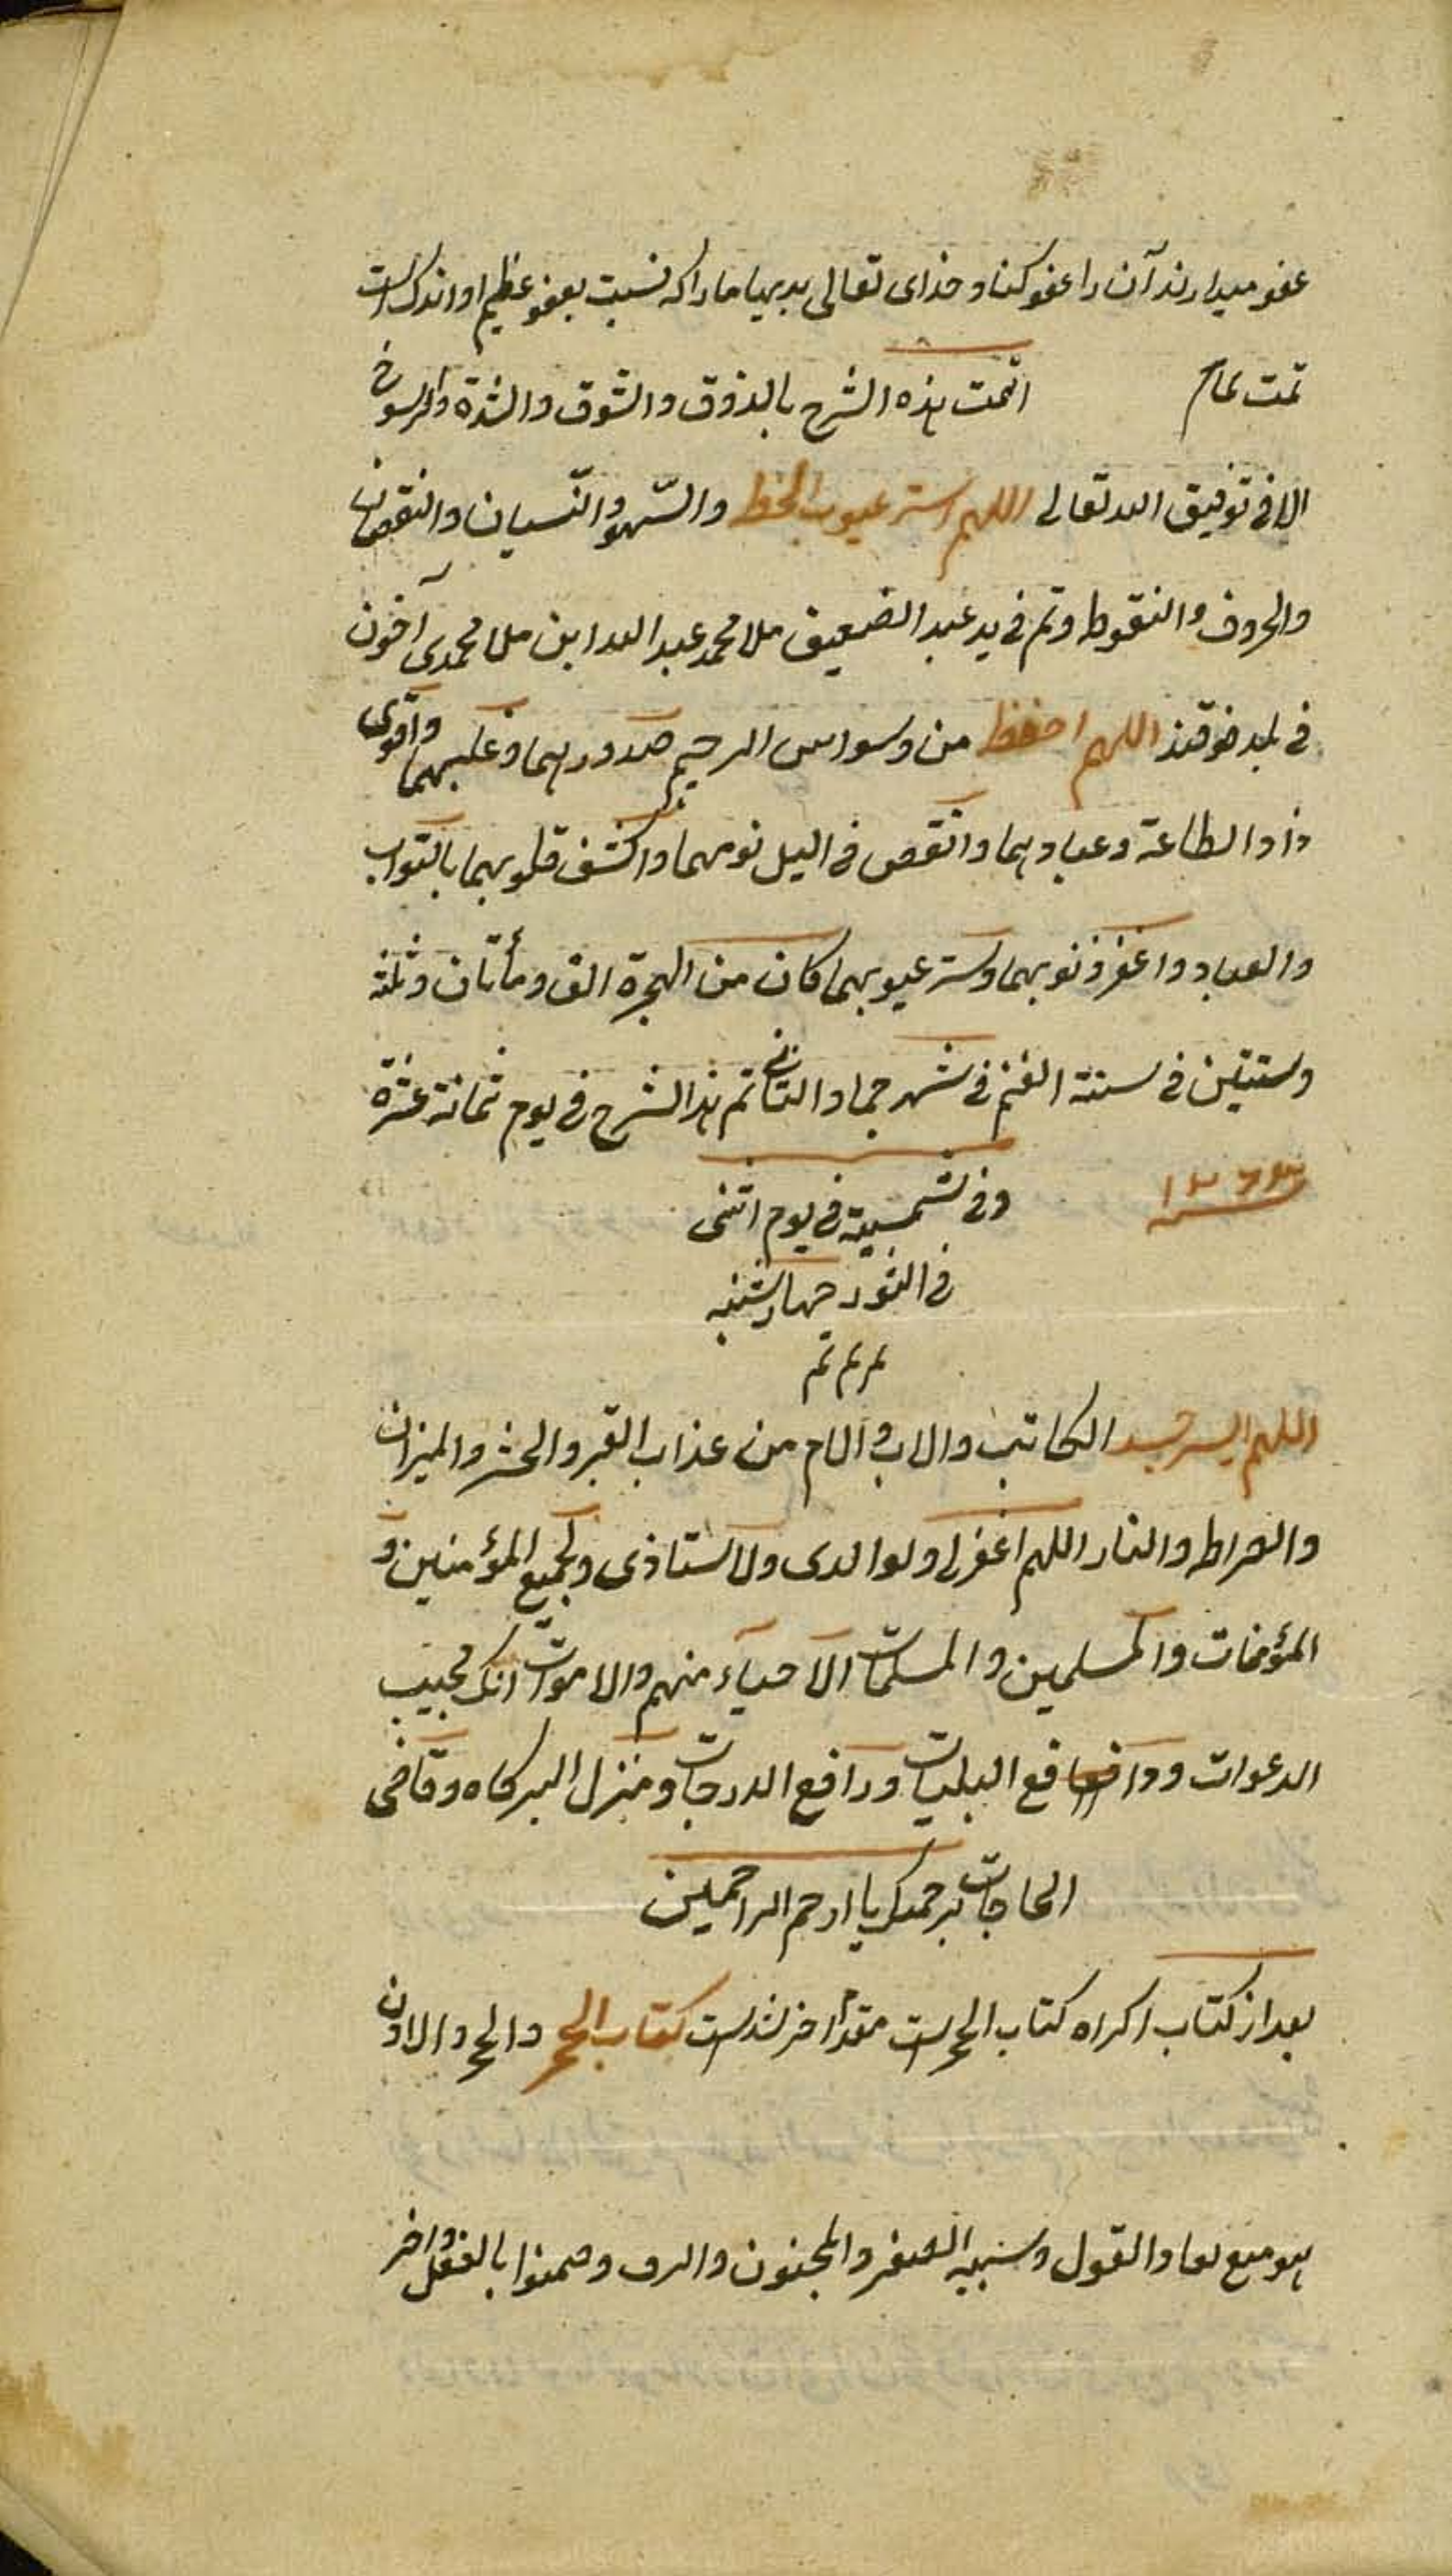 عفو میدارند آن را عفو کنا و خدای تعالی بدیهیا ما را که نسبت بعفو عظیم او اندک است
تمت تمام اتمت هذه الشرح بالذوق والشوق والشدة والرسوخ
الا فی توفیق الله تعالی اللهم استر عیوب الخط والسهو والنسیان والنقصان
والحروف والنقوط وتم فی ید عبد الضعیف ملا محمد عبد الله ابن ملا محمدی آخون
فی بلد خوقند اللهم احفظ من وسواس الرجیم صدورهما وغلبهما واقوی
ذا دا الطاعة وعبادهما وانقص فی الیل نومهما واکشف قلوبهما بالتواب
والعباد واغفر ذنوبهما وستر عیوبهما کان من الهجرة الف ومأتان وثلثة
وستین فی سنة الغنم فی شهر جماد الثانی تم هذا الشرح فی یوم ثمانة عشرة
سنه ١٢٦٣ وفی شمسیة فی یوم اثنی
فی الثور چهارشنبه
تم تم تم
اللهم الکاتب والاب والام من عذاب القبر والحشر والمیزان
والصراط والنار اللهم اغفرلی ولوالدی ولاستاذی ولجمیع المؤمنین و
المؤمنات والمسلمین والمسلمات الاحیاء منهم والاموات انک مجیب
الدعوات و دافع البلیات ورافع الدرجات ومنزل البرکاه وقاضی
الحاجات برحمتک یا ارحم الراحمین
بعد از کتاب اکراه کتاب الحجر است مقدا خر شد است کتاب الحجر والحجر والاذن
هو منع نفاد القول وسببه الصغر والجنون والرق وضمنوا بالفعل واخر